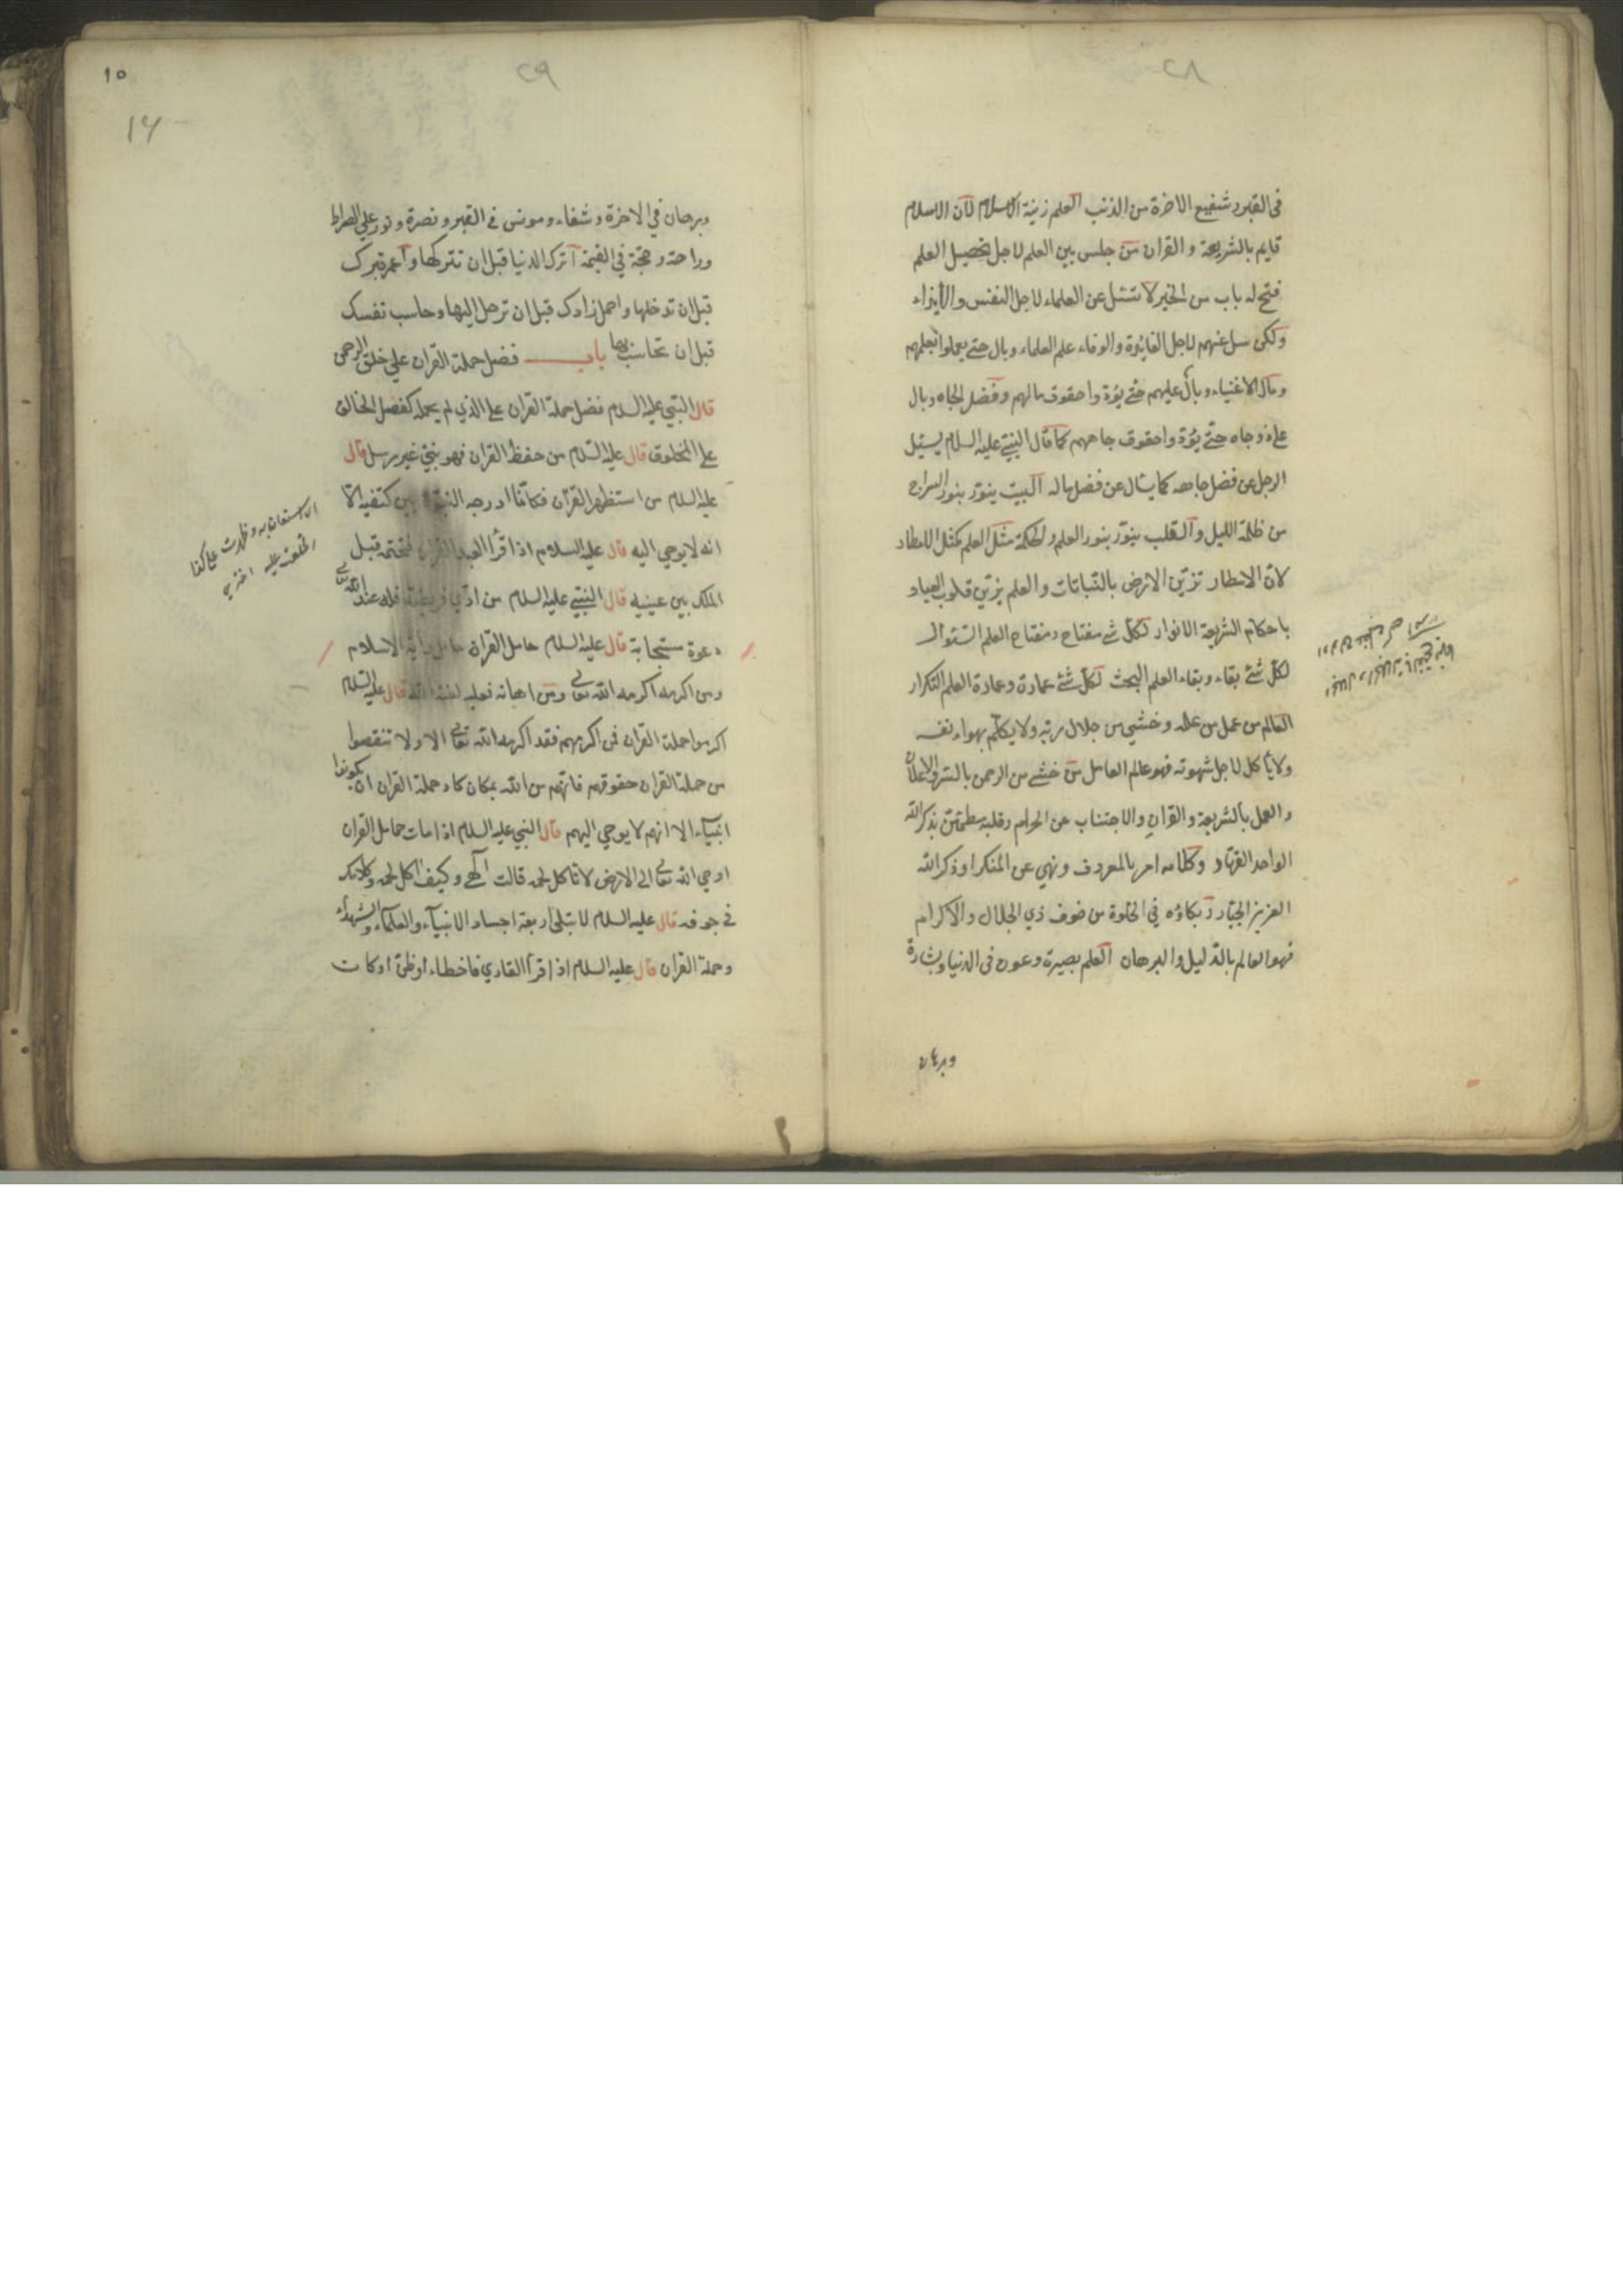 ٢٨
فى القبور شفيع الاخرة من الذنب العلم زينة الاسلام لان الاسلام
قايم بالشريعة و القران من جلس بين العلم لاجل تحصيل العلم
فتح له باب من الخير لا تسئل عن العلماء لاجل النفس والايذاء
ولكن سل عنهم لاجل الفائدة والوفاء علم العلماء وبال حتى يعملوا بعلمهم
ومال الاغنياء وبال عليهم حتى يؤدوا حقوق مالهم وفضل الجاه وبال
على ذوجاه حتى يؤدوا حقوق جاههم كما قال النبي عليه السلام يسئل
الرجل عن فضل جاهه كما يسال عن فضل ماله البيت ينور بنور السراج
من ظلمة الليل والقلب ينور بنور العلم والحكمة مثل العلم كمثل الامطار
لان الامطار تزين الارض بالنباتات والعلم يزين قلوب العباد
باحكام الشريعة الانوار لكل شئ مفتاح ومفتاح العلم السئوال
لكل شئ بقاء وبقاء العلم البحث لكل شئ عمارة وعمارة العلم التكرار
العالم من عمل من علمه وخشي من جلال ربه ولا يكلم بهواء نفسه
ولا ياكل لاجل شهوته فهو عالم العامل من خشى من الرحمن بالسر والاعلان
والعمل بالشريعة والقران والاجتناب عن الحرام وقلبه مطمئن بذكر الله
الواحد القهار وكلامه امر بالمعروف ونهي عن المنكر او ذكر الله
العزيز الجبار وبكاؤه في الخلوة من خوف ذي الجلال والاكرام
فهو العالم بالدليل والبرهان العلم بصيرة وعون فى الدنيا وبشارة
وبرهان
٢٩
١٥
١٦
وبرهان في الاخرة وشفاء ومونس فى القبر ونصرة ونور علي الصراط
وراحة وحجة في القيمة اترك الدنيا قبل ان تتركها واعمر قبرك
قبل ان تدخلها واحمل زادك قبل ان ترحل اليها وحاسب نفسك
قبل ان تحاسب بها باب فضل حملة القران علي خلق الرحمن
قال النبي عليه السلام فضل حملة القران على الذي لم يحمله كفضل الخالق
على المخلوق قال عليه السلام من حفظ القران فهو بنبي غير مرسل قال
عليه السلام من استظهر القران فكانما ادرجه النبوة بين كتفيه الا
انه لا يوحي اليه قال عليه السلام اذا قرأ العبد القران فختمه قبل
الملك بين عينيه قال النبي عليه السلام من ادي فريضة فله عند الله تعالى
دعوة مستجابة قال عليه السلام حامل القران حامل راية الاسلام
ومن اكرمه اكرمه الله تعالى ومن اهانه فعليه لعنة الله قال عليه السلام
اكرموا حملة القران فمن اكرمهم فقد اكرمه الله تعالى الا ولا تنقصوا
من حملة القران حقوقهم فانهم من الله بمكان كاد حملة القران ان يكونوا
انبياء الا انهم لا يوحي اليهم قال النبي عليه السلام اذا مات حامل القران
اوحي الله تعالى الى الارض لا تاكل لحمه قالت الهى وكيف اكل لحمه وكلامك
فى جوفه قال عليه السلام لا تبلى اربعة اجساد الانبياء والعلماء والشهداء
وحملة القران قال عليه السلام اذا قرأ القاري فاخطاء او ظن او كان